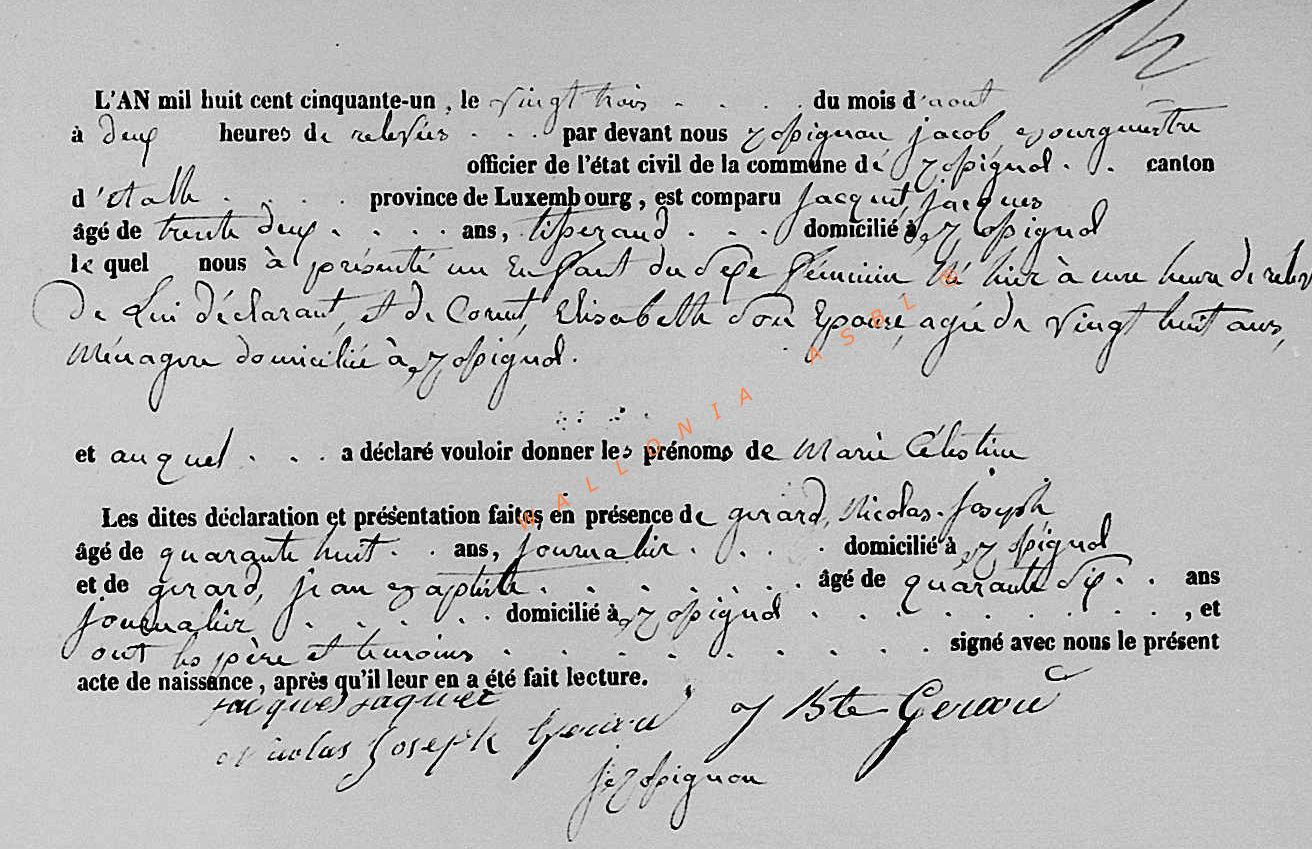 L'AN mil huit cent cinquante-un, le vingt trois . . . . du mois d'aout
à deux heures de relevées . . . par devant nous Rossignon, jacob, Bourguestre
officier de l'état civil de la commune de Rossignol . . canton
d'etalle . . . . province de Luxembourg, est comparu Jacquet, jacques
âgé de trente deux . . . . ans, tisserand . . . domicilié à Rossignol
le quel nous à présenté un Enfant du sexe féminin Né hier à une heure de relev
De Lui déclarant, et de Cornet, Elisabeth Son Epouse, agée de vingt huit ans,
Ménagere domiciliée à Rossignol.
et auquel . . . a déclaré vouloir donner les prénoms de Marie Célestine
Les dites déclaration et présentation faites en présence de gerard, Nicolas-Joseph
âgé de quarante huit . . ans, Journalier . . . . domicilié à Rossignol
et de gerard, jean Baptiste . . . . . . . âgé de quarante Six . . ans
Journalier . . . . . domicilié à Rossignol . . . . . . . . , et
ont les père et temoins . . . . . . . . . signé avec nous le présent
acte de naissance, après qu'il leur en a été fait lecture.
jacques jaquet
Nicolas Joseph Gerard J Bte Gerard
j Rossignon
WALLONIA ASBL ©